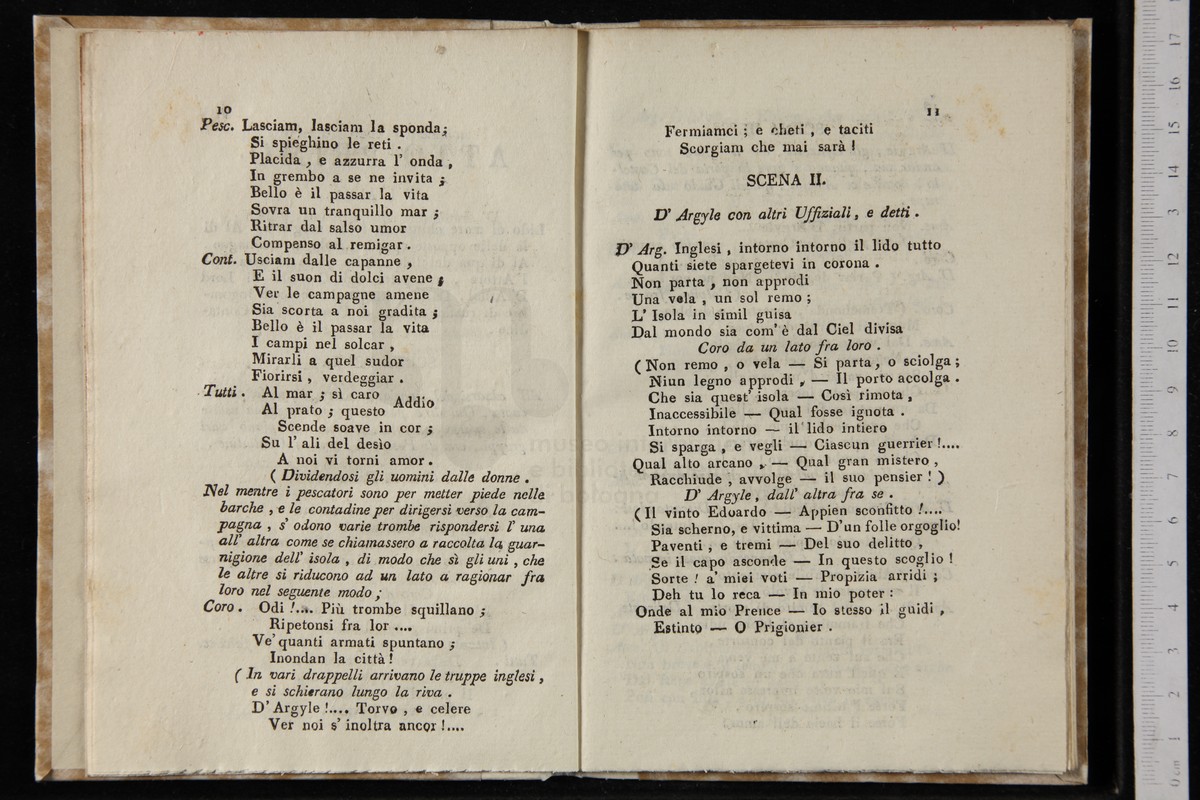 10
Pesc. Lasciam, lasciam la sponda;
Si spieghino le reti .
Placida , e azzurra l' onda ,
In grembo a se ne invita ;
Bello è il passar la vita
Sovra un tranquillo mar ;
Ritrar dal salso umor
Compenso al remigar .
Cont. Usciam dalle capanne ,
E il suon di dolci avene ;
Ver le campagne amene
Sia scorta a noi gradita ;
Bello è il passar la vita
I campi nel solcar ,
Mirarli a quel sudor
Fiorirsi , verdeggiar .
Tutti . Al mar ; sì caro
Al prato ; questo Addio
Scende soave in cor ;
Su l' ali del desìo
A noi vi torni amor .
( Dividendosi gli uomini dalle donne .
Nel mentre i pescatori sono per metter piede nelle
barche , e le contadine per dirigersi verso la cam-
pagna , s' odono varie trombe rispondersi l' una
all' altra come se chiamassero a raccolta la guar-
nigione dell' isola , di modo che sì gli uni , che
le altre si riducono ad un lato a ragionar fra
loro nel seguente modo ;
Coro . Odi !.... Più trombe squillano ;
Ripetonsi fra lor ....
Ve' quanti armati spuntano ;
Inondan la città !
( In vari drappelli arrivano le truppe inglesi ,
e si schierano lungo la riva .
D' Argyle !.... Torvo , e celere
Ver noi s' inoltra ancor !....
11
Fermiamci ; e cheti , e taciti
Scorgiam che mai sarà !
SCENA II.
D' Argyle con altri Uffiziali , e detti .
D' Arg. Inglesi , intorno intorno il lido tutto
Quanti siete spargetevi in corona .
Non parta , non approdi
Una vela , un sol remo ;
L' Isola in simil guisa
Dal mondo sia com' è dal Ciel divisa
Coro da un lato fra loro .
( Non remo , o vela — Si parta, o sciolga ;
Niun legno approdi , — Il porto accolga .
Che sia quest' isola — Così rimota ,
Inaccessibile — Qual fosse ignota .
Intorno intorno — il lido intiero
Si sparga , e vegli — Ciascun guerrier !....
Qual alto arcano , — Qual gran mistero ,
Racchiude , avvolge — il suo pensier ! )
D' Argyle , dall' altra fra se .
( Il vinto Eduardo — Appien sconfitto !....
Sia scherno, e vittima — D'un folle orgoglio!
Paventi , e tremi — Del suo delitto ,
Se il capo asconde — In questo scoglio !
Sorte ! a' miei voti — Propizia arridi ;
Deh tu lo reca — In mio poter :
Onde al mio Prence — Io stesso il guidi ,
Estinto — O Prigionier .